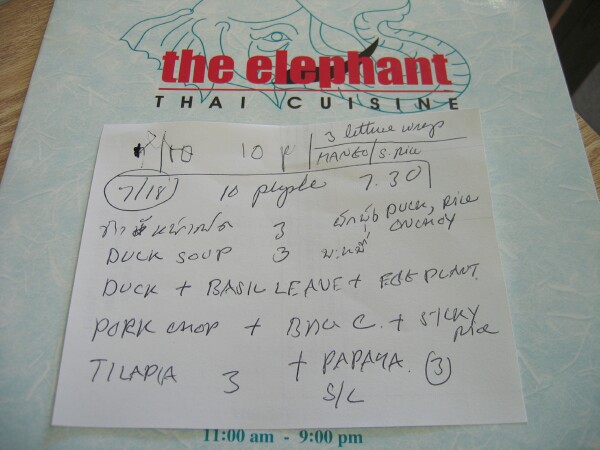 the elephant
THAI CUISINE
10 P 3 lettuce wraps
MANGO / S. Rice
7/18 10 people 7.30
3 DUCK, RICE
DUCK SOUP 3 บะหมี่
DUCK + BASIL LEAVE + EGEPLANT
PORK CHOP + + STICKY
Rice
TILAPIA 3 + PAPAYA (3)
S/L
11:00 am - 9:00 pm